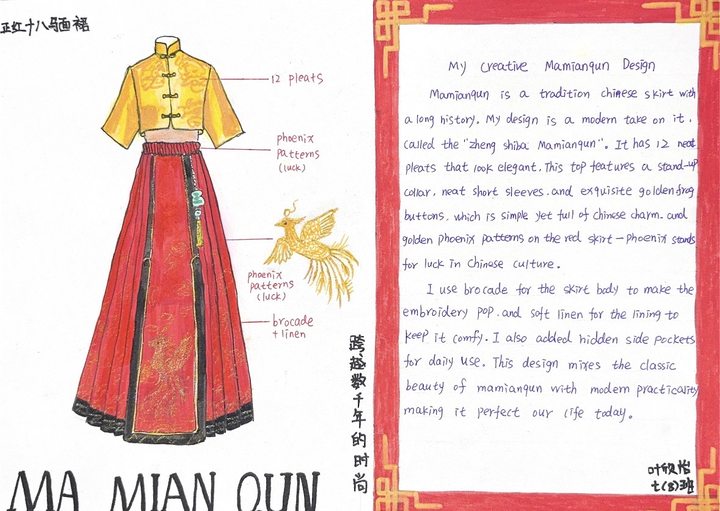 正红十八马面裙
12 pleats
phoenix
patterns
(luck)
phoenix
patterns
(luck)
brocade
+ linen
跨越数千年的时尚
MA MIAN QUN
My creative Mamianqun Design
Mamianqun is a tradition chinese skirt with
a long history. My design is a modern take on it,
called the "zheng shiba Mamianqun". It has 12 neat
pleats that look elegant. This top features a stand-up
collar, neat short sleeves. and exquisite golden frog
buttons. which is simple yet full of chinese charm. and
golden phoenix patterns on the red skirt - Phoenix stands
for luck in Chinese culture.
I use brocade for the skirt body to make the
embroidery pop. and soft linen for the lining to
keep it comfy. I also added hidden side pockets
for daily use. This design mixes the classic
beauty of mamianqun with modern practicality
making it perfect our life today.
叶欣怡
七(8)班